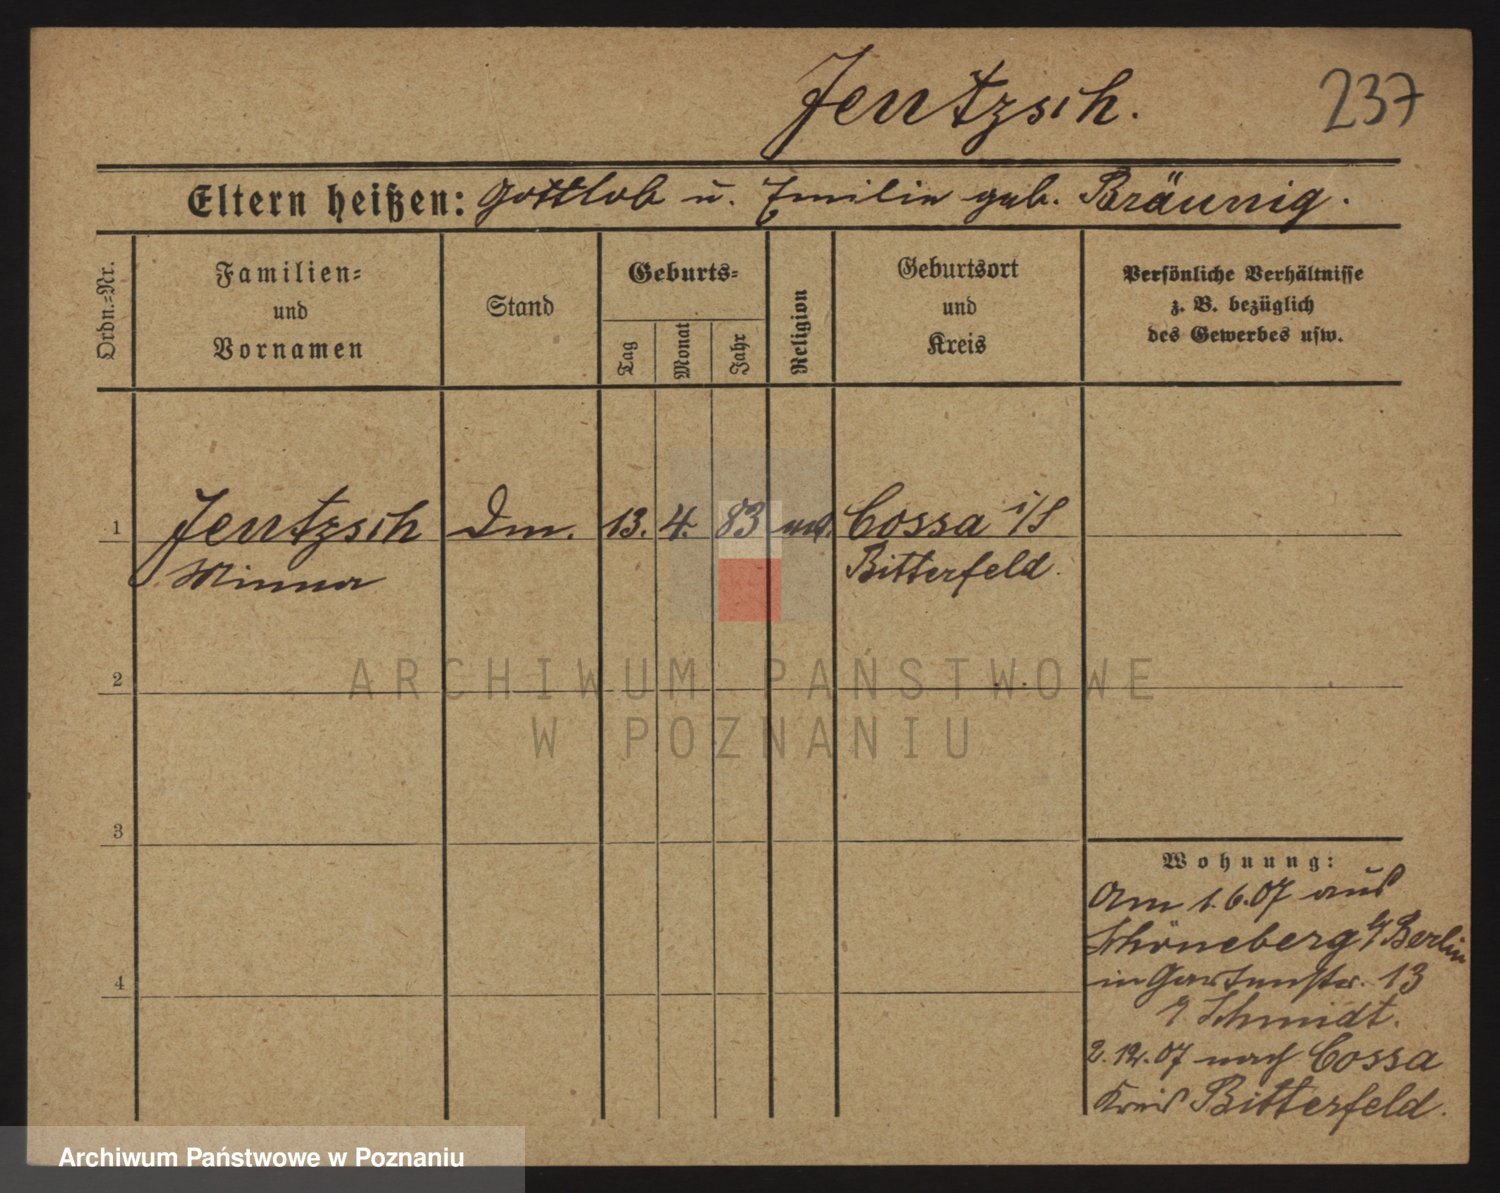 Jentzsch.
237
Eltern heißen: Gottlob u. Emilie geb. Bräunig.
Ordn.-Nr.
Familien-
und
Vornamen
Stand
Geburts-
Tag
Monat
Jahr
Religion
Geburtsort
und
Kreis
Persönliche Verhältnisse
z. B. bezüglich
des Gewerbes usw.
1
Jentzsch Dm. 13. 4. 83 Cossa i/S
Minna Bitterfeld.
2
ARCHIWUM PAŃSTWOWE
W POZNANIU
3
Wohnung:
Am 1.6.07 aus
Schöneberg b/Berlin
in Gartenstr. 13
b/ Schmidt.
4
2.12.07 nach Cossa
Kreis Bitterfeld.
Archiwum Państwowe w Poznaniu